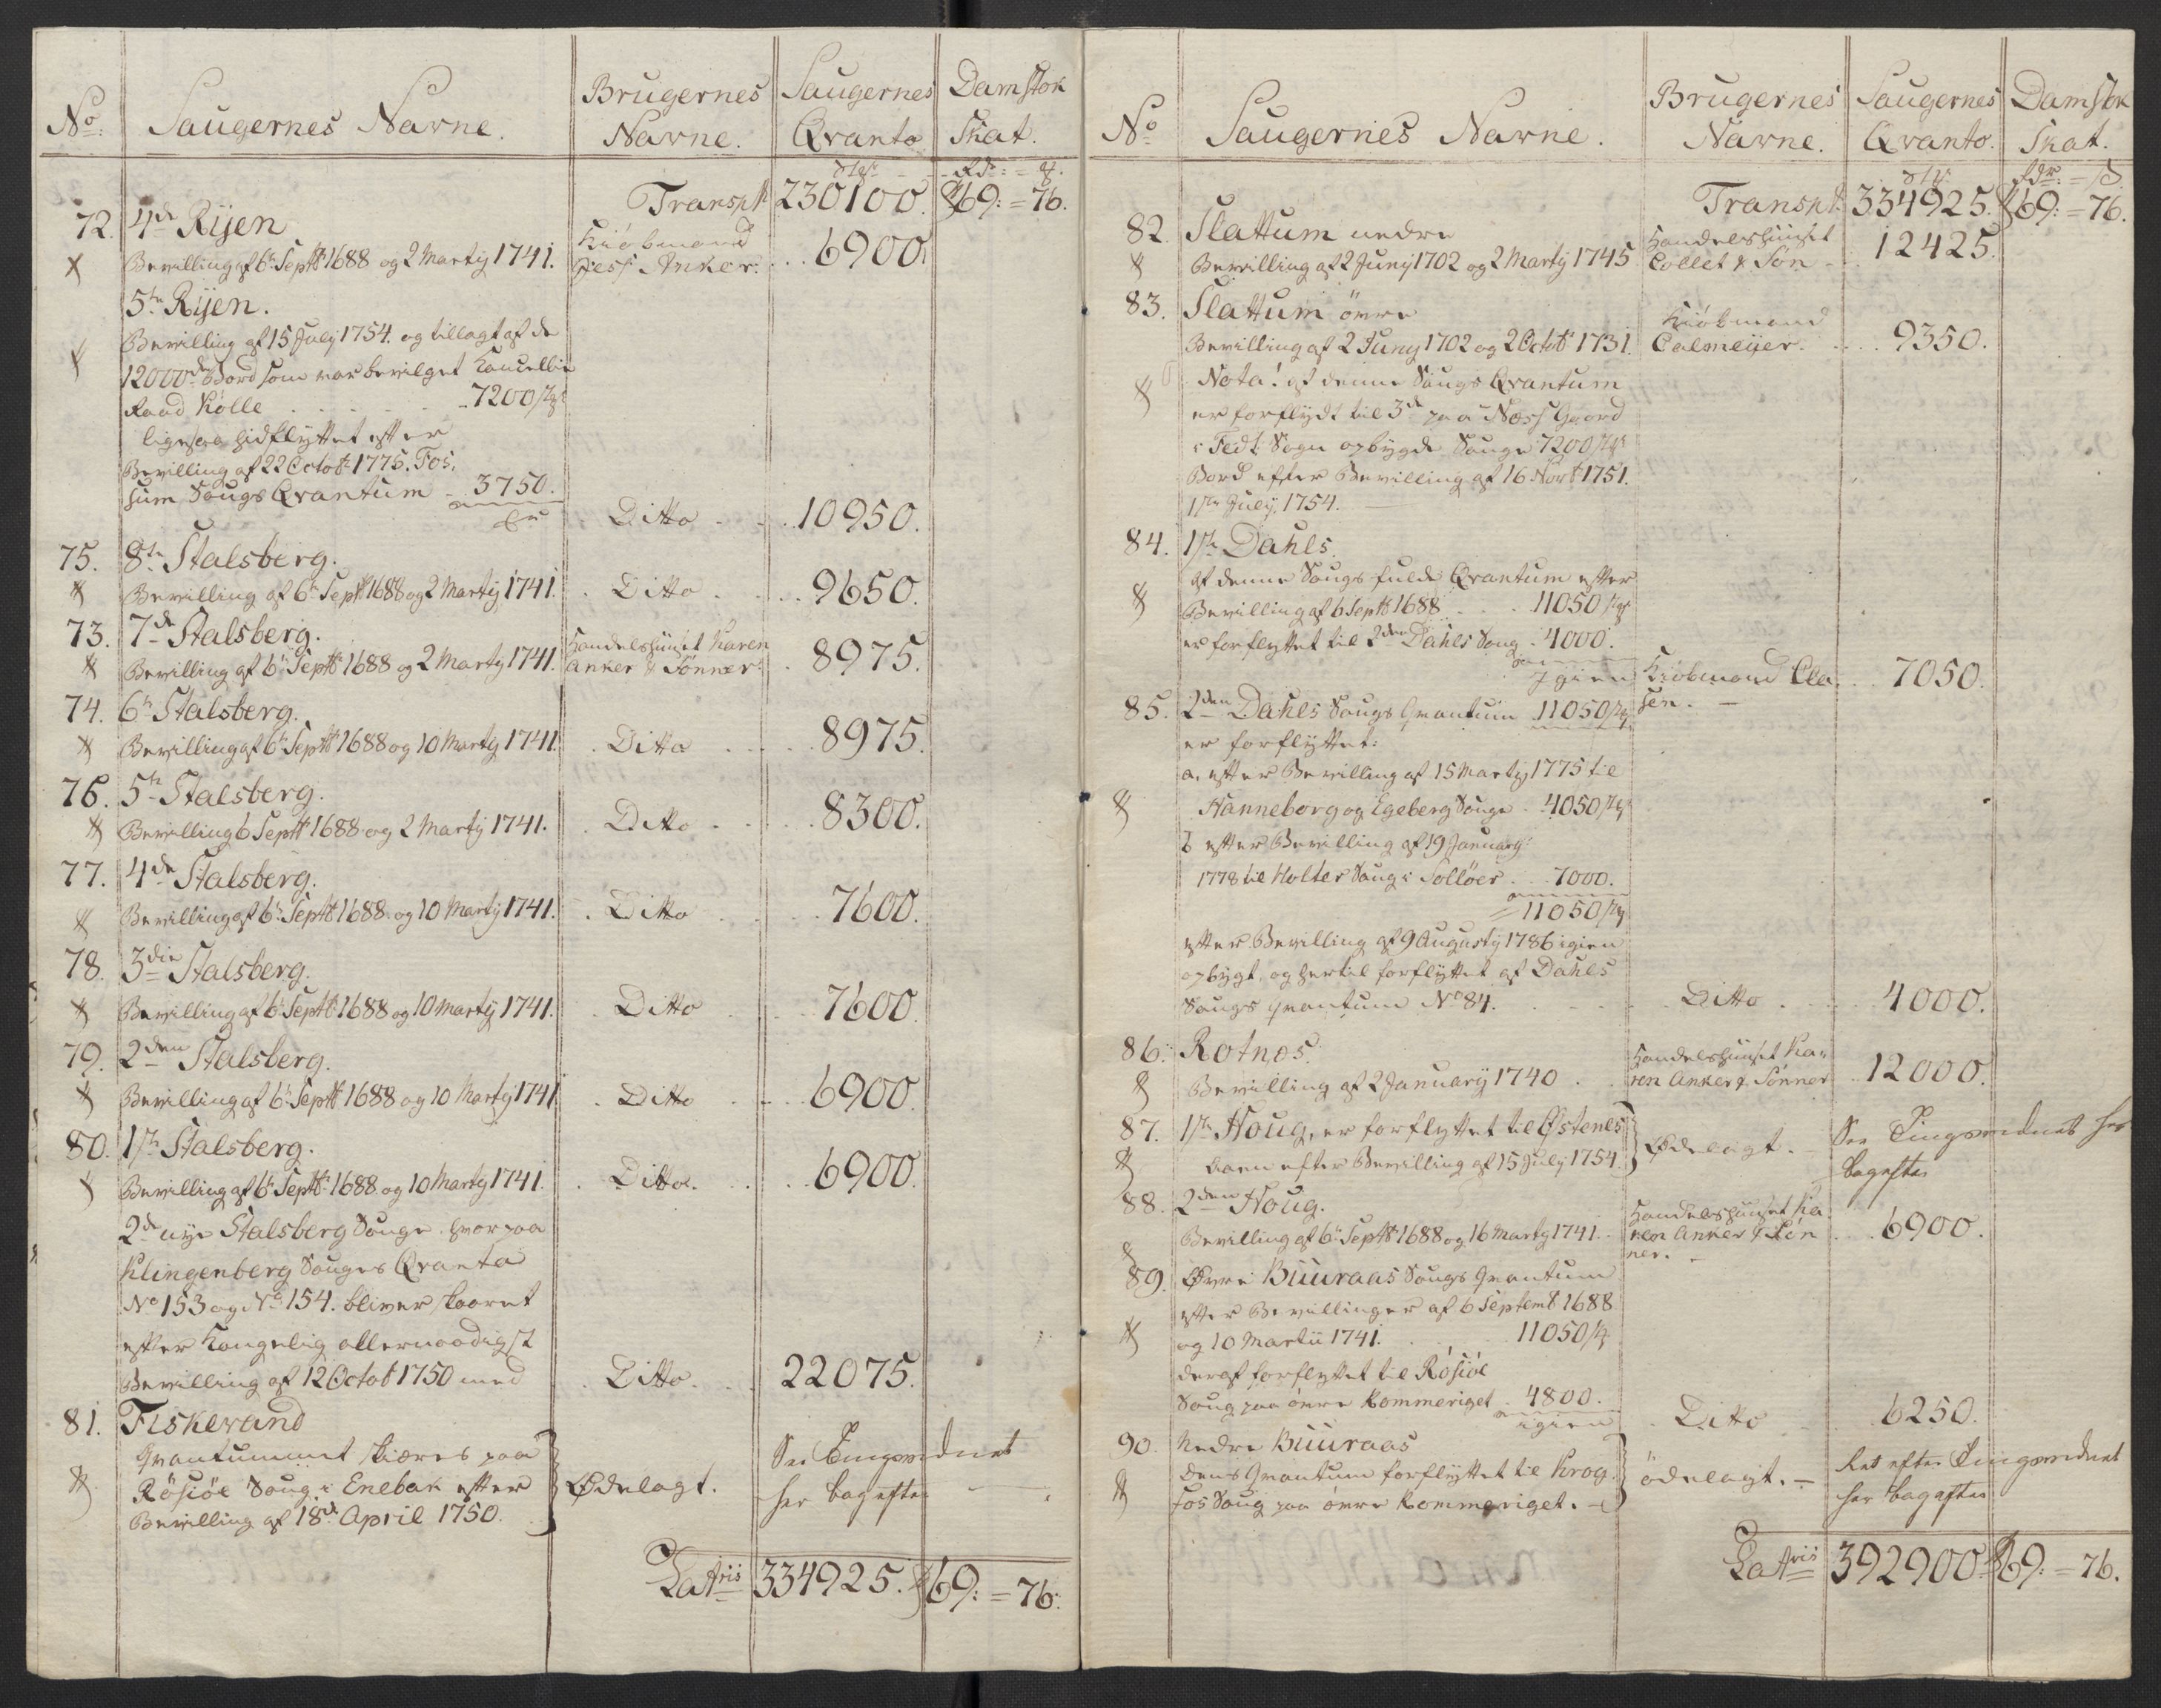 No: Saugernes Navne. Brugernes Navne. Saugernes Qvanta Damstok Skat.
Transpt 230100. 69:=76.
72. 4de Ryen
Bevilling af 6te Septbr 1688 og 2 Marty 1741. Kiöbmand Jess Anker. 6900.
5te Ryen.
Bevilling af 15 July 1754. og tillagt af de
12000de Bord som var bevilget Cancellie
Raad Kölle 7200
ligesaa hidflyttet efter
Bevilling af 22 Octobr 1775. Fos-
sum Saugs Qvantum 3750.
Ditto 10950.
75. 8te Stalsberg.
Bevilling af 6te Sept 1688 og 2 Marty 1741. Ditto 9650.
73. 7de Stalsberg.
Bevilling af 6te Septbr 1688 og 2 Marty 1741. Handelshuuset Karen Anker & Sönner 8975.
74. 6te Stalsberg.
Bevilling af 6te Septbr 1688 og 10 Marty 1741. Ditto 8975.
76. 5te Stalsberg.
Bevilling 6 Septbr 1688 og 2 Marty 1741. Ditto 8300.
77. 4de Stalsberg.
Bevilling af 6te Septbr 1688 og 10 Marty 1741. Ditto 7600.
78. 3die Stalsberg.
Bevilling af 6te Septbr 1688 og 10 Marty 1741. Ditto 7600.
79. 2den Stalsberg.
Bevilling af 6te Septbr 1688 og 10 Marty 1741 Ditto 6900.
80. 1ste Stalsberg.
Bevilling af 6te Septbr 1688 og 10 Marty 1741. Ditto. 6900.
2de nye Stalsberg Sauge hvorpaa
Klingenberg Sauges Qvanta
No 153 og No 154. bliver skaaret
efter Kongelig allernaadigst
Bevilling af 12 Octob 1750 med Ditto. 22075.
81. Fiskevand
Qvantummet skiæres paa
Rösiöe Saug i Enebak efter
Bevilling af 18de April 1750. Ödelagt. See Tingsvidnet her bagefter
Latris 334925. 69:=76.
No Saugernes Navne. Brugernes Navne. Saugernes Qvanto. Damstok Skat.
Transpt. 334925. 69:=76.
82. Slattum nedre
Bevilling af 2 Juny 1702 og 2 Marty 1745 Handelshuuset Collet & Søn 12425.
83. Slattum övre
Bevilling af 2 Juny 1702 og 2 Octob 1731. Kiöbmand Calmeyer. 9350.
Nota! af denne Saugs Qvantum
er forflydt til 3de paa Næss Gaard
i Fedt Sogn opbygde Sauge 7200
Bord efter Bevilling af 16 Novb 1751.
15te July 1754.
84. 1ste Dahls.
af denne Saugs fulde Qvantum efter
Bevilling af 6 Septb 1688 11050
er forflyttet til 2den Dahls Saug 4000.
Igien Kiöbmand Cla- 7050.
85. 2den Dahls Saugs Qvantum 11050 sen.
er forflyttet:
a. efter Bevilling af 15 Marty 1775 til
Hanneborg og Egeberg Sauge 4050
b efter Bevilling af 19 January
1778 til Holter Saug i Solløer 7000.
11050
efter Bevilling af 9 Augusty 1786 igien
opbygt, og hertil forflyttet af Dahls
Saugs Qvantum No 84. Ditto 4000.
86. Rotnes.
Bevilling af 2 January 1740 Handelshuuset Karen Anker & Sönner 12000.
87. 1ste Houg, er forflyttet til Østenes-
haen efter Bevilling af 15 July 1754. Ödelagt. See Tingsvidnet her bagefter
88. 2den Houg.
Bevilling af 6te Septbr 1688 og 16 Marty 1741. Handelshuuset Karen Anker & Sönner. 6900.
89. Øvre Buuraas Saugs Qvantum
efter Bevillinger af 6 Septemb 1688
og 10 Martii 1741. 11050
deraf forflyttet til Rösiöe
Saug paa övre Rommeriget 4800.
igien Ditto 6250.
90. Nedre Buuraas
dens Qvantum forflyttet til Krog-
fos Saug paa övre Rommeriget. ödelagt. Ret efter Tingsvidnet her bagefter
Latris 392900. 69:=76.